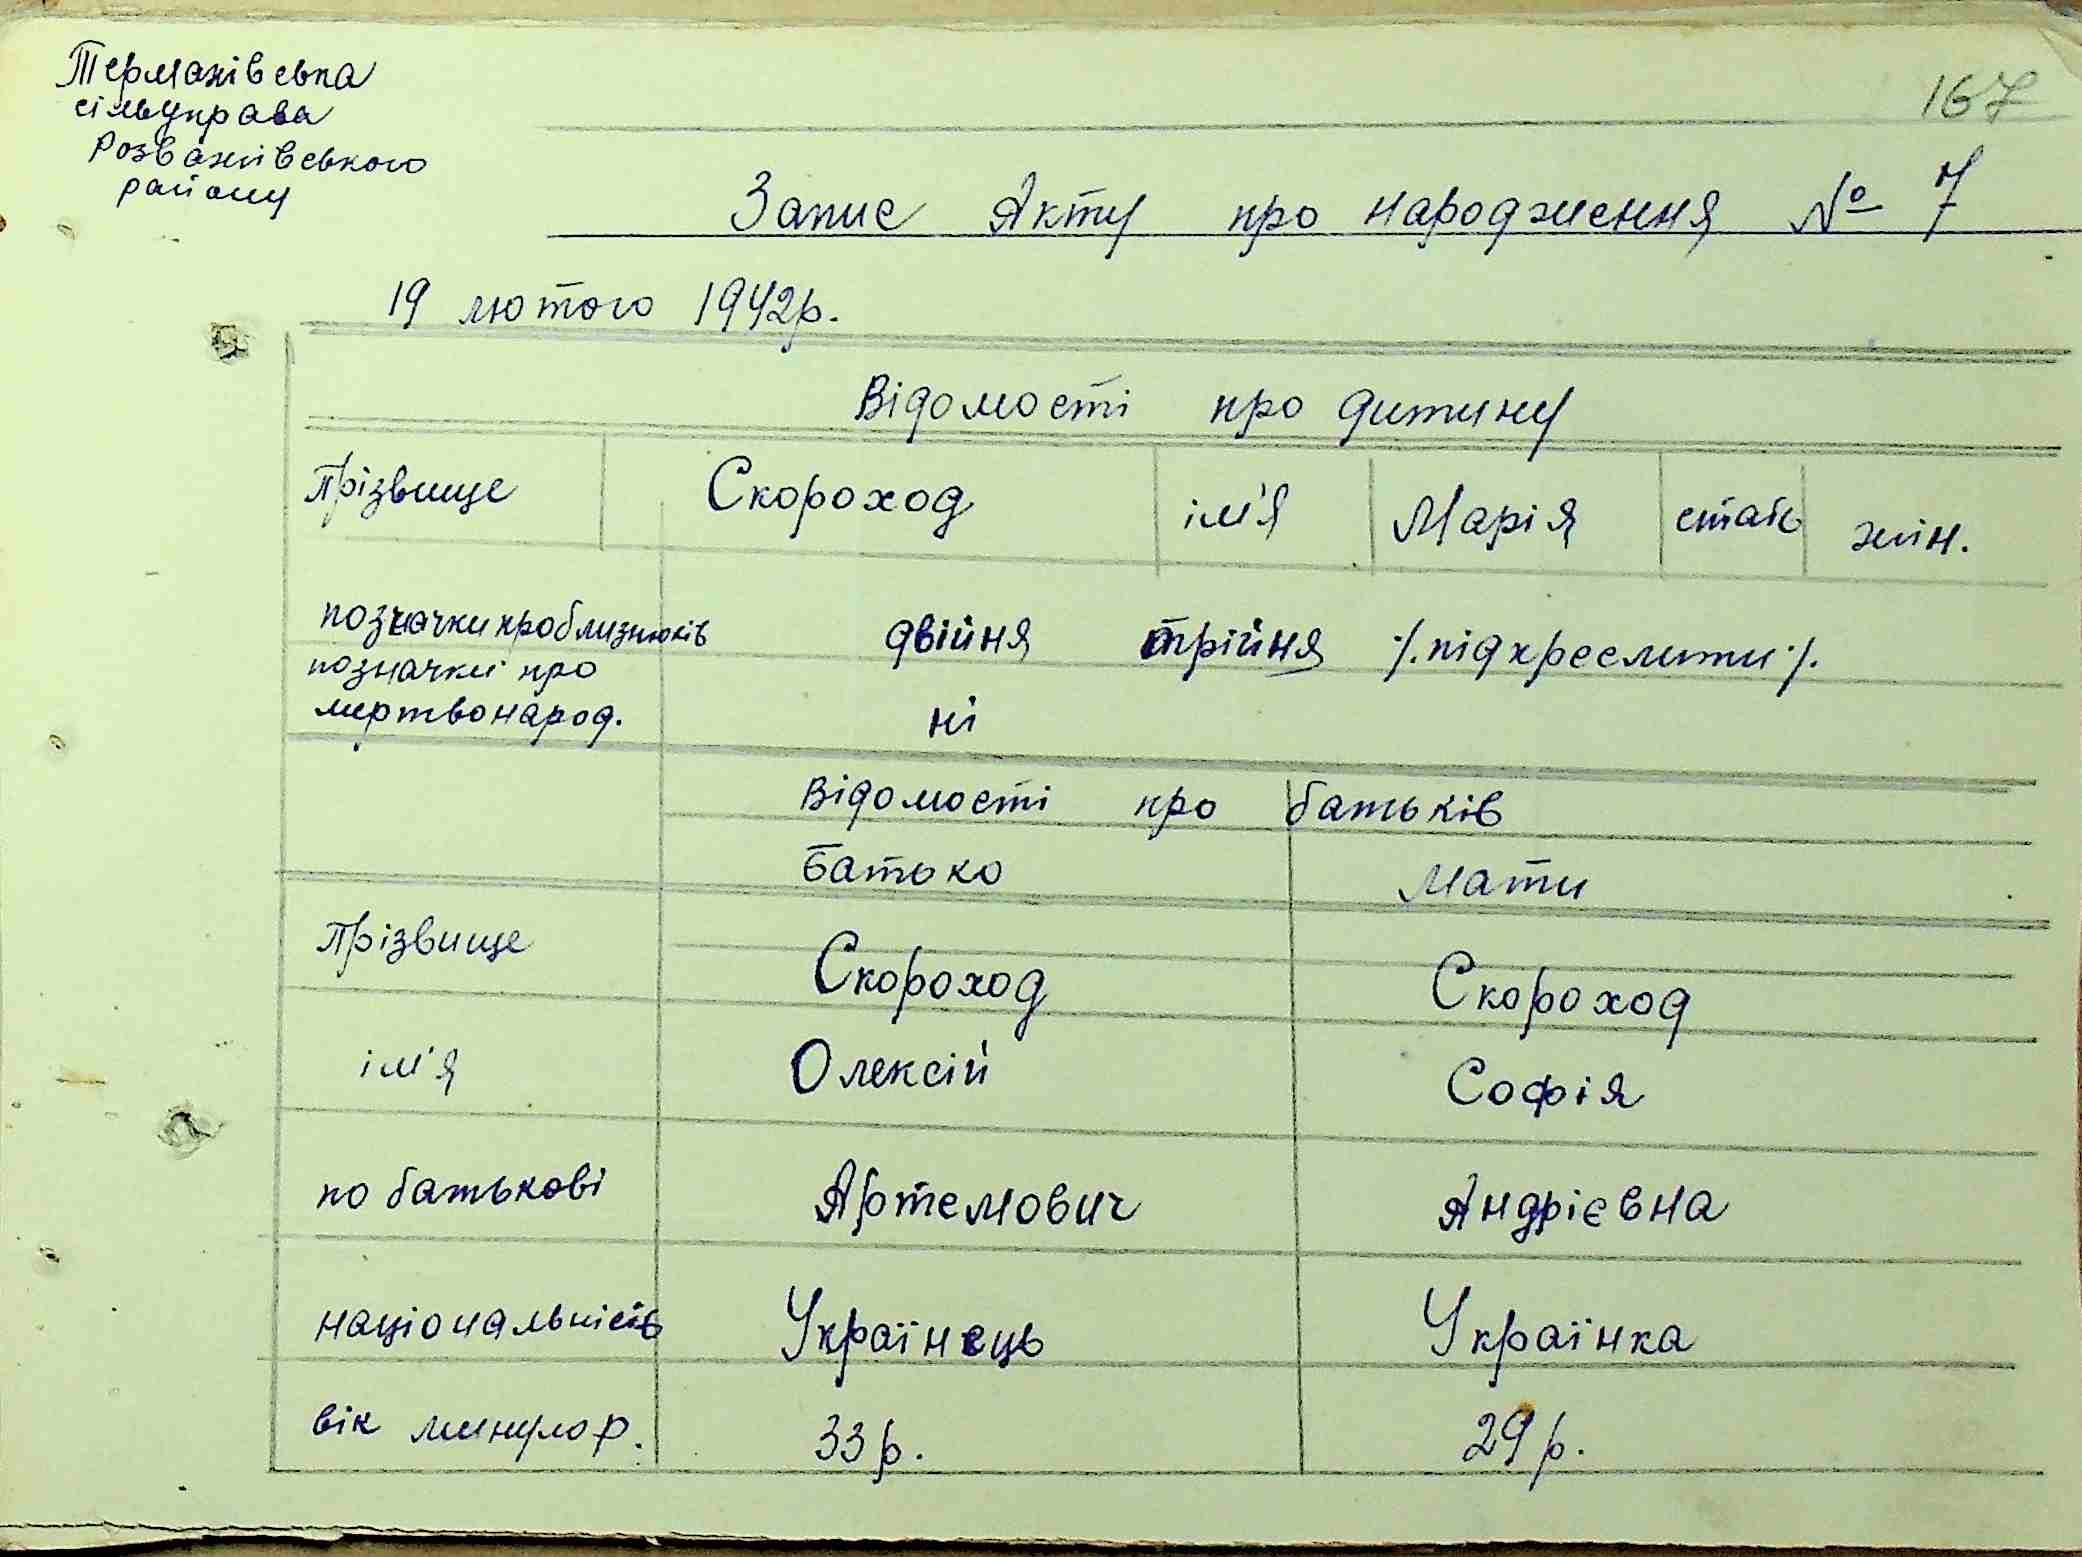 Термахівська
сільуправа
Розважівського
району
167
Запис Акту про народження № 7
19 лютого 1942р.
Відомості про дитину
Прізвище Скороход ім'я Марія стать жін.
позначки про близнюків двійня трійня ./. підкреслити ./.
позначки про
мертвонарод. ні
Відомості про батьків
Батько Мати
Прізвище Скороход Скороход
ім'я Олексій Софія
по батькові Артемович Андрієвна
національність Українець Українка
вік минуло р. 33 р. 29 р.